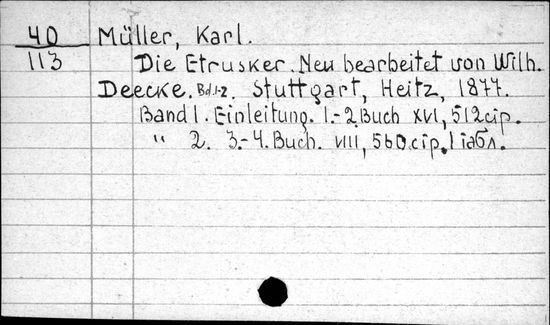 40 Müller, Karl.
113 Die Etrusker. Neu bearbeitet von Wilh.
Deecke. Bd.1-2. Stuttgart, Heitz, 1877.
Band 1. Einleitung. 1.-2. Buch XVI, 512 cтр.
" 2. 3.-4. Buch. VIII, 560 cтр. 1 табл.